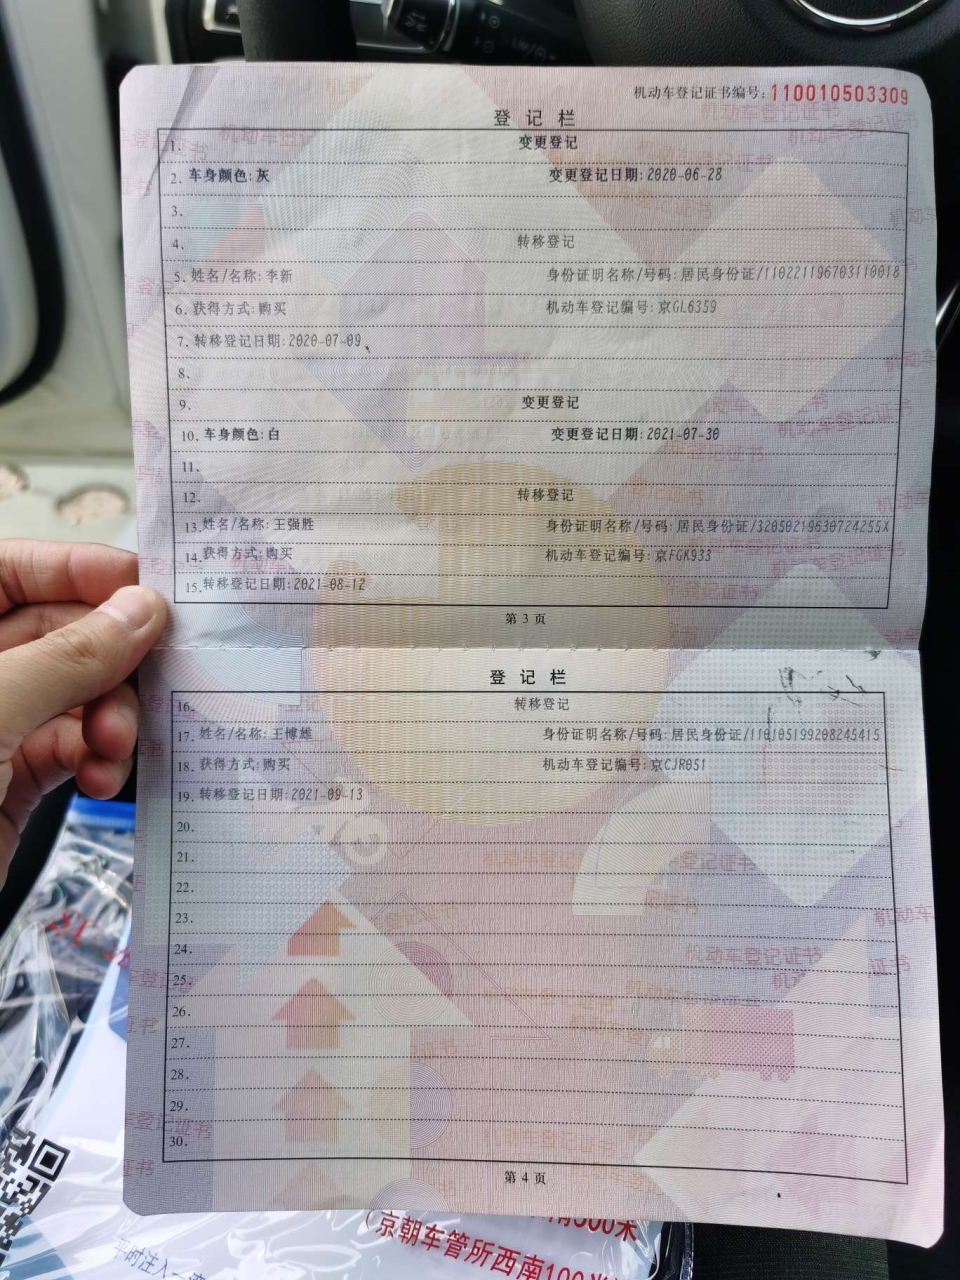 机动车登记证书编号：110010503309
登 记 栏
1. 变更登记
2. 车身颜色:灰 变更登记日期:2020-06-28
3.
4. 转移登记
5. 姓名/名称:李新 身份证明名称/号码:居民身份证/110221196703110018
6. 获得方式:购买 机动车登记编号:京GL6359
7. 转移登记日期:2020-07-09
8.
9. 变更登记
10. 车身颜色:白 变更登记日期:2021-07-30
11.
12. 转移登记
13. 姓名/名称:王强胜 身份证明名称/号码:居民身份证/32050219630724255X
14. 获得方式:购买 机动车登记编号:京FGK933
15. 转移登记日期:2021-08-12
第 3 页
登 记 栏
16. 转移登记
17. 姓名/名称:王博雄 身份证明名称/号码:居民身份证/110105199208245415
18. 获得方式:购买 机动车登记编号:京CJR051
19. 转移登记日期:2021-09-13
20.
21.
22.
23.
24.
25.
26.
27.
28.
29.
30.
第 4 页
（京朝车管所西南100米
平时注入一